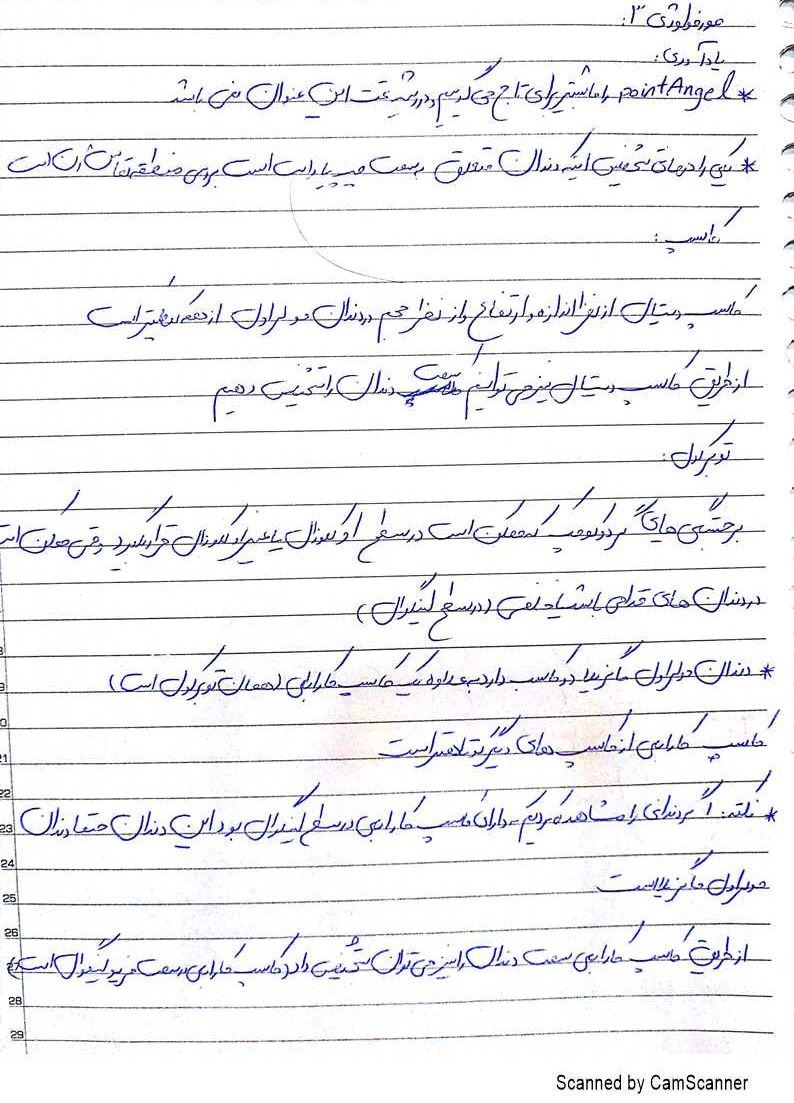 مورفولوژی ۳:
یادآوری:
* point Angel را ما بیشتر برای تاج می گوییم و در ریشه تحت این عنوان نمی باشد
* یکی از راه های تشخیص اینکه دندان متعلق به سمت چپ یا راست است بررسی منطقه تماس آن است
کاسپ:
کاسپ دیستال از نظر اندازه و ارتفاع و از نظر حجم در دندان مولر اول از همه کوچکتر است
از طریق کاسپ دیستال نیز می توانیم سمت دندان را تشخیص دهیم
توبرکول:
برجستگی های گرد و کوچک که ممکن است در سطح اکلوزال یا غیر اکلوزال قرار بگیرد و حتی ممکن است
در دندان های قدامی باشد (در سطح لینگوال)
* دندان مولر اول ماگزیلا دو کاسپ دارد به علاوه یک کاسپ کارابلی (همان توبرکول است)
کاسپ کارابلی از کاسپ های دیگر کوتاهتر است
* نکته: اگر دندانی را مشاهده کردیم که دارای کاسپ کارابلی در سطح لینگوال بود این دندان حتما دندان
مولر اول ماگزیلا است
از طریق کاسپ کارابلی سمت دندان را نیز می توان تشخیص داد (کاسپ کارابلی در سمت مزیولینگوال است)
22
23
24
25
26
27
28
29
Scanned by CamScanner